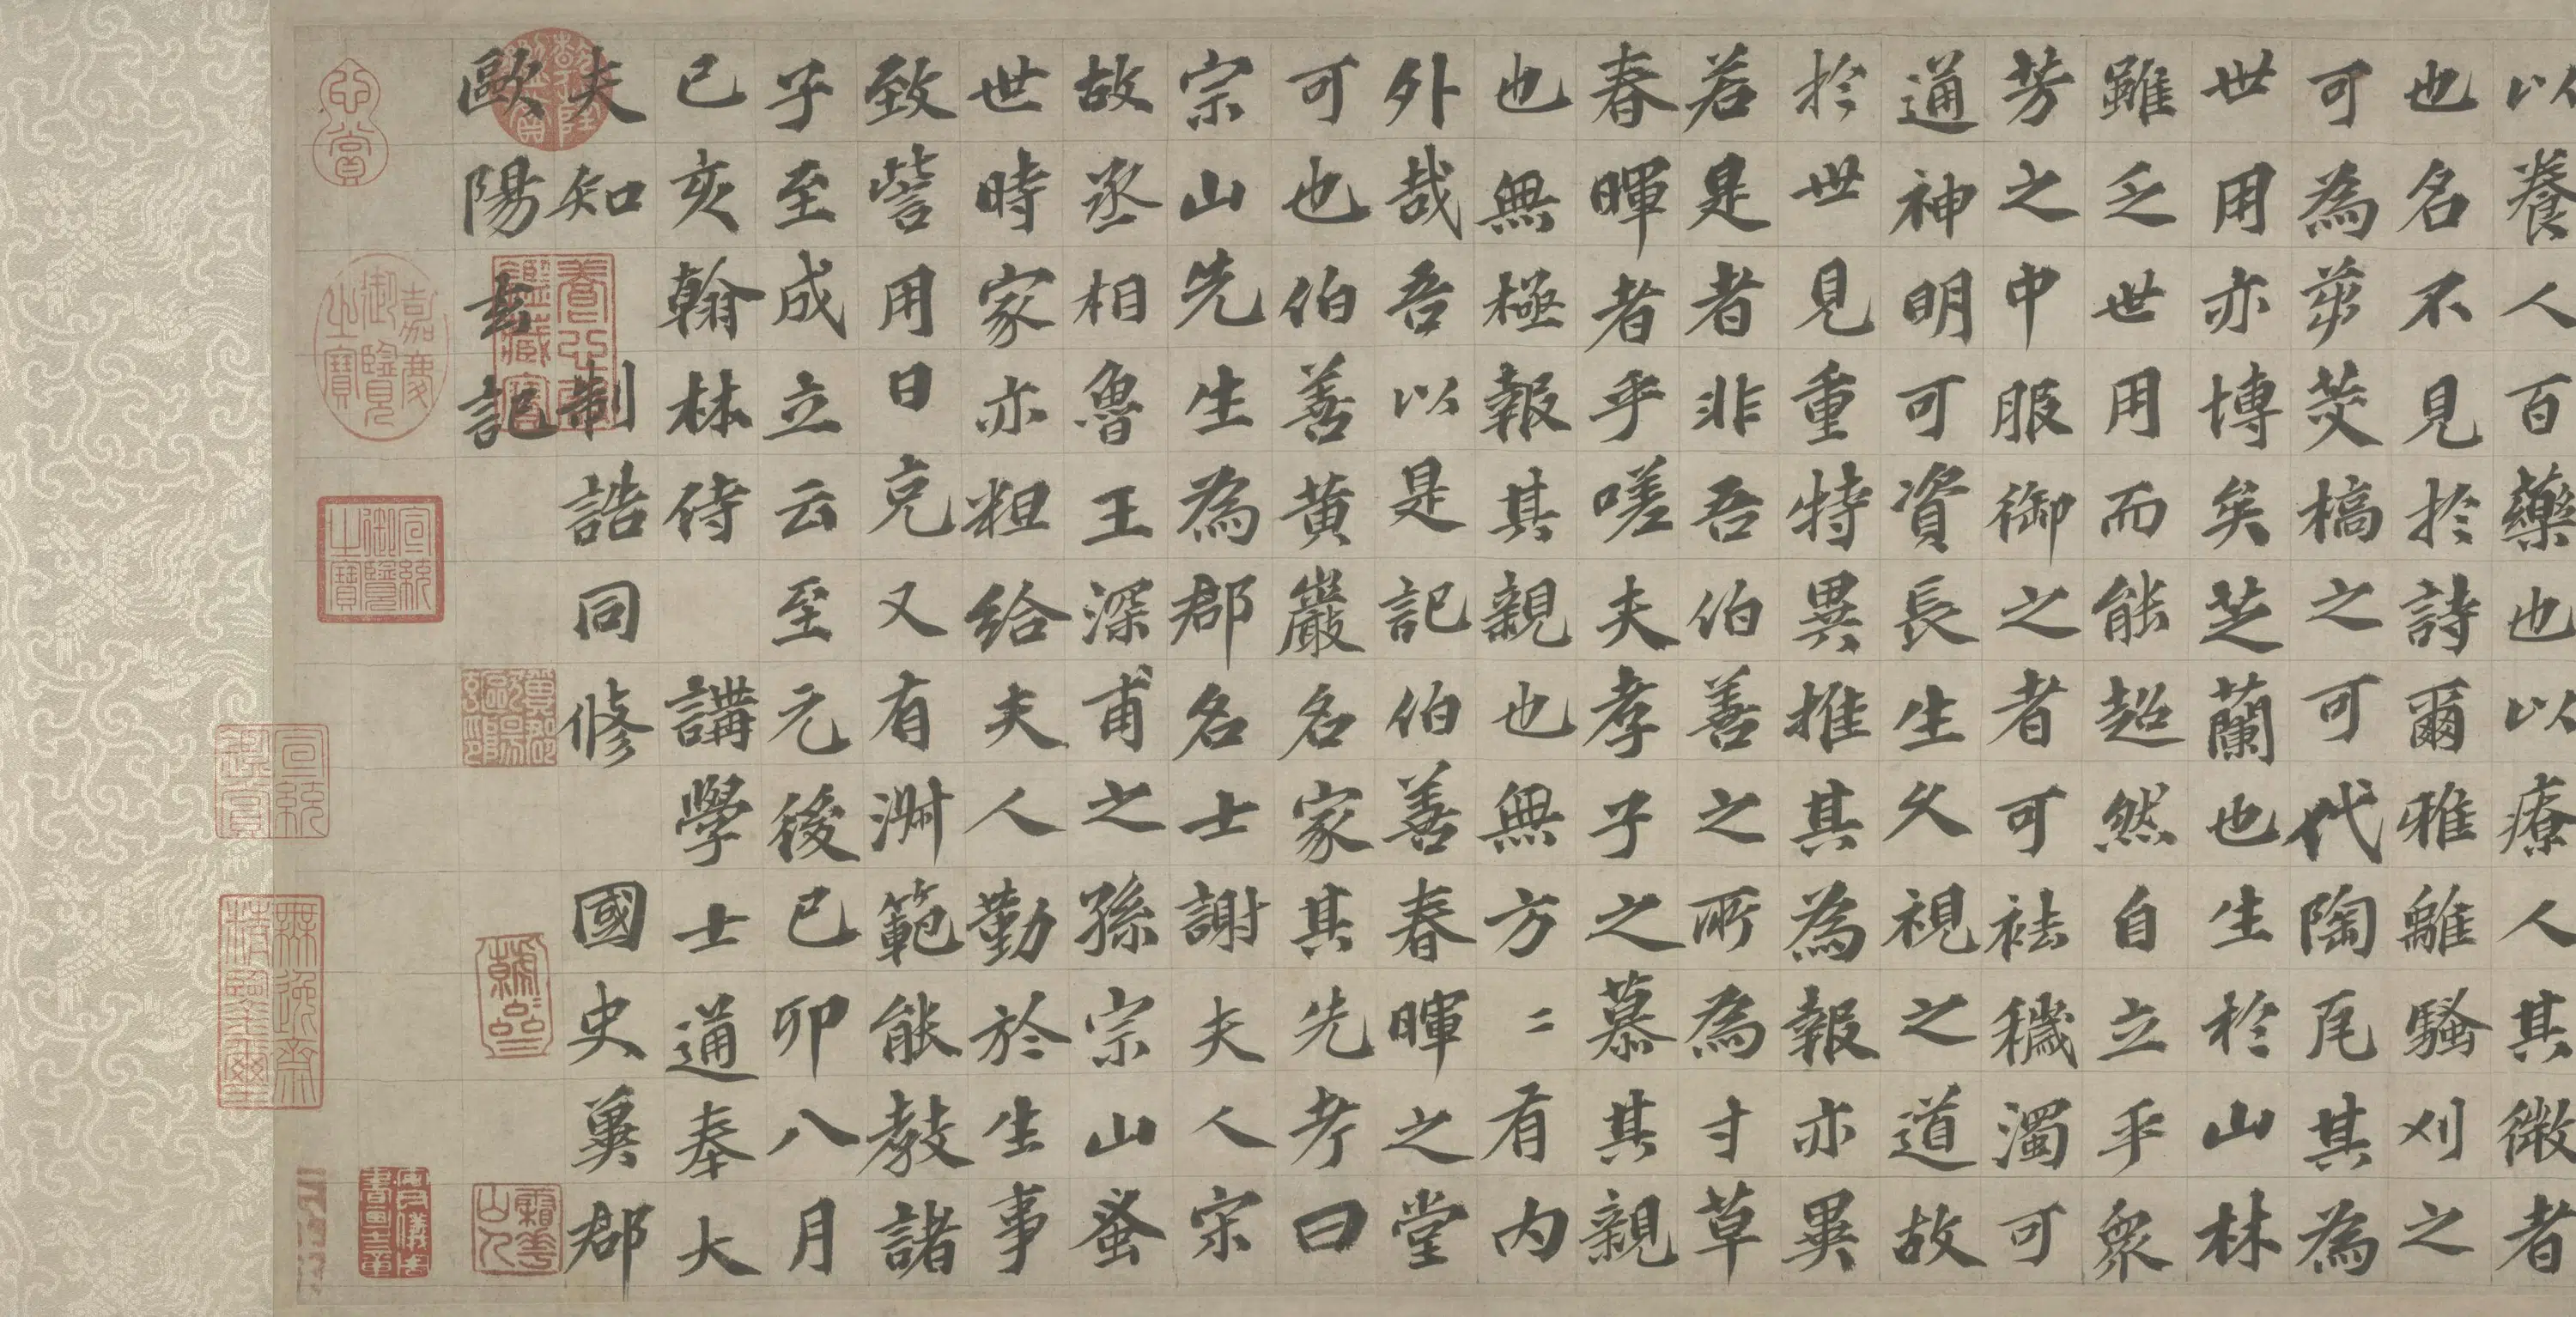 以養人百藥也以療人其微者
也名不見於詩爾雅離騷刈之
可為茅茭槁之可代陶瓦其為
世用亦博矣芝蘭也生於山林
雖乏世用而能超然自立乎衆
芳之中服御之者可祛穢濁可
通神明可資長生久視之道故
於世見重特異推其為報亦異
若是者非吾伯善之所為寸草
春暉者乎嗟夫孝子之慕其親
也無極報其親也無方〻有內
外哉吾以是記伯善春暉之堂
可也伯善黃巖名家其先考曰
宗山先生為郡名士謝夫人宋
故丞相魯王深甫之孫宗山蚤
世時家亦粗給夫人勤於生事
致訾用日克又有淑範能教諸
子至成立云至元後己卯八月
己亥翰林侍 講學士通奉大
夫知 制誥同修 國史冀郡
歐陽玄記
乾隆鑑賞
養心殿鑑藏寶
嘉慶御覽之寶
宣統御覽之寶
宣統鑑賞
無逸齋精鑑璽